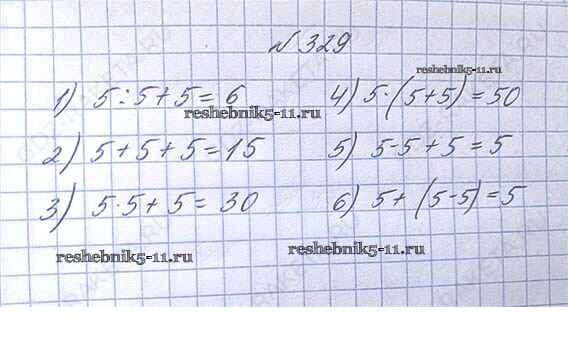 № 329
reshebnik5-11.ru
1) 5:5+5=6
4) 5·(5+5)=50
reshebnik5-11.ru
2) 5+5+5=15
5) 5-5+5=5
3) 5·5+5=30
6) 5+(5-5)=5
reshebnik5-11.ru
reshebnik5-11.ru